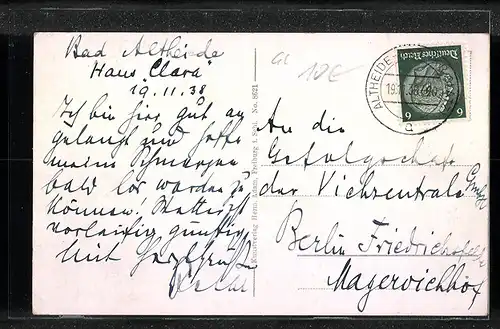 Bad Altheide
Haus "Clara"
19.11.38
Ich bin hier gut an
gelangt und hoffe
meine Schmerzen
bald los werden zu
können! Wetter ist
vorläufig günstig
Mit
Kunstverlag Herm. Freiburg i. No. 8621
10€
ALTHEIDE
19.11.38
a
Deutsches Reich
6 6
An die
Gefolgschaft
der Viehzentrale GmbH
Berlin Friedrichsfelde
Magerviehhof